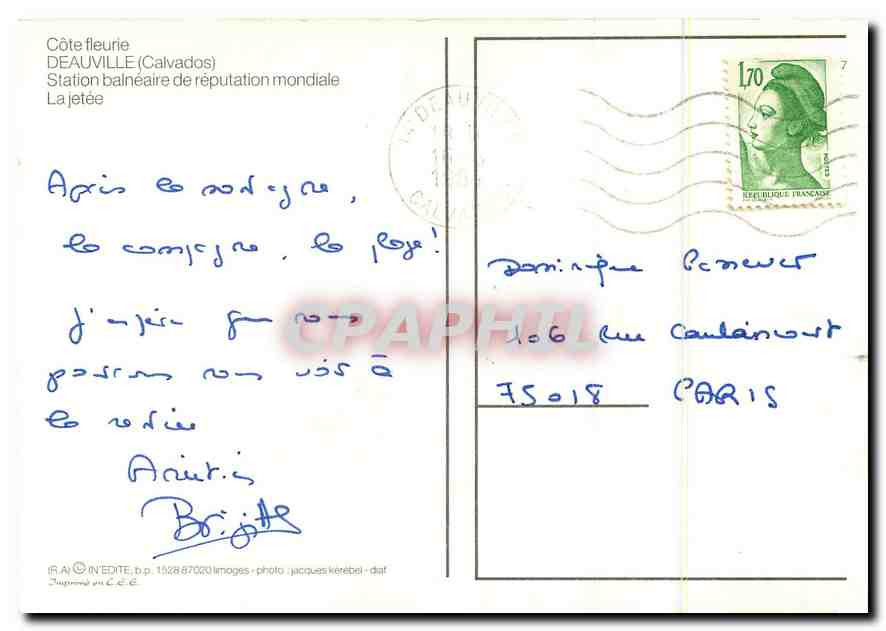 Côte fleurie
DEAUVILLE (Calvados)
Station balnéaire de réputation mondiale
La jetée
1,70
REPUBLIQUE FRANÇAISE
DEAUVILLE
Après la montagne,
la campagne, la plage!
J'espère que nous
pourrons nous voir à
la rentrée
Amitiés
Brigitte
Dominique
106 Rue Caulaincourt
75018 PARIS
CPAPHIL
(R.A) © IN'EDITE, b.p. 1528 87020 limoges - photo : jacques kérébel - diaf
Imprimé en C.E.E.